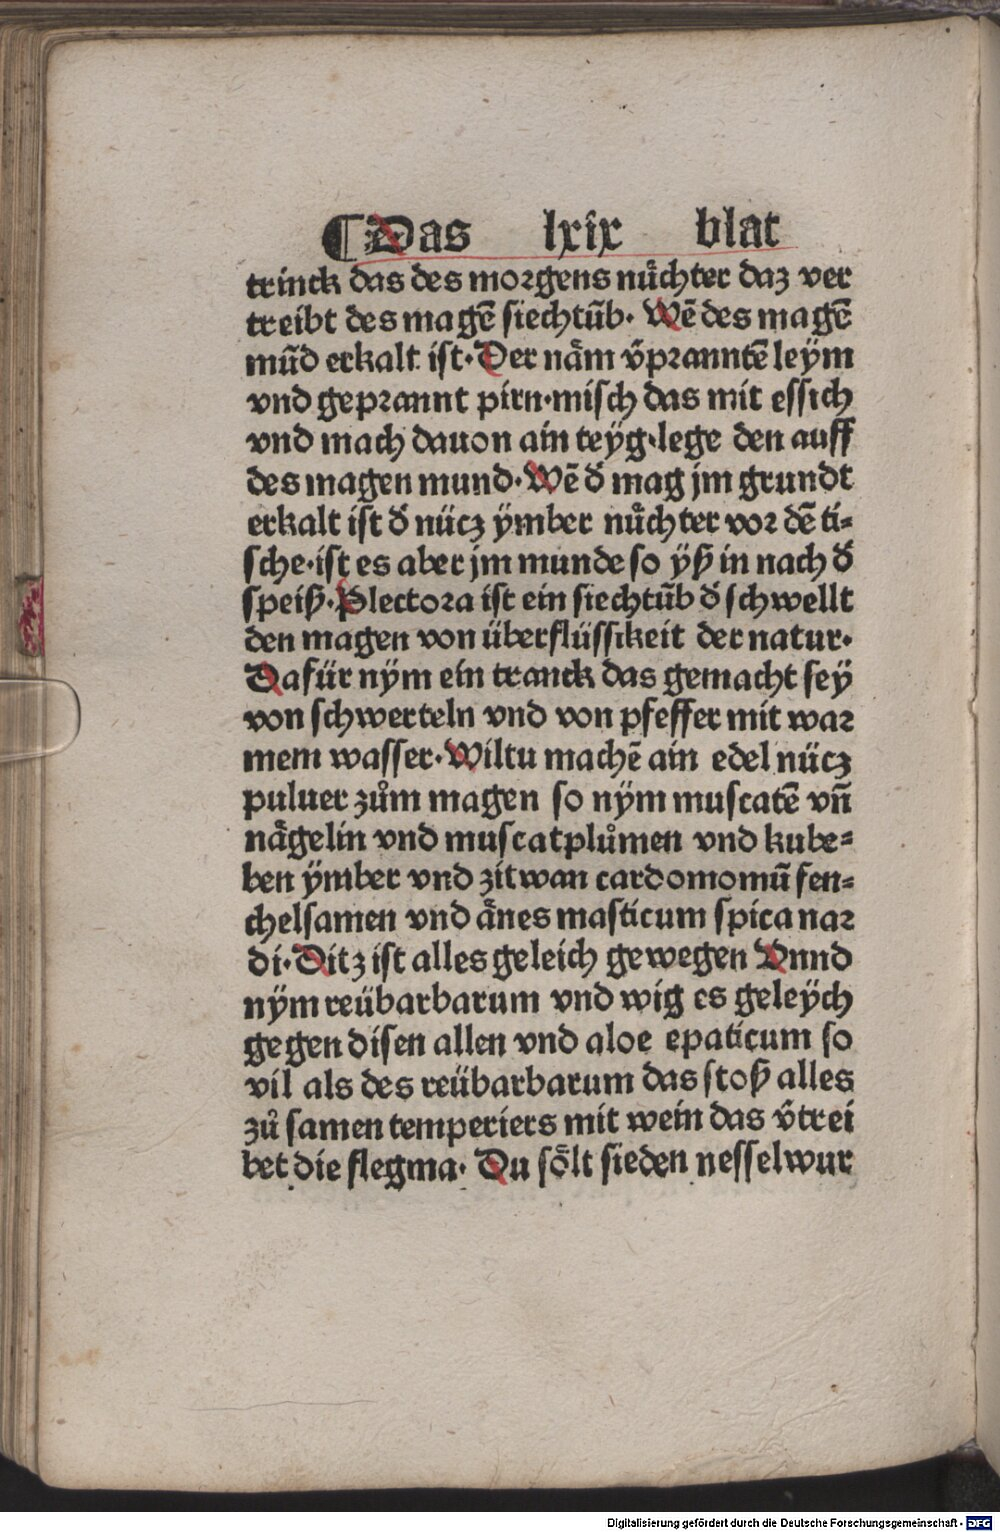 ¶ Das lxix blat
trinck das des morgens nuͤchter daz ver
treibt des magē siechtūb. Wē des magē
mūd erkalt ist. Der näm v̄prannTē leym
vnd geprannt pirn.misch das mit essich
vnd mach dauon ain teÿg.lege den auff
des magen mund. Wē d̕ mag jm grundt
erkalt ist d̕ nücz ÿmber nuͤchter vor dē ti⸗
sche.ist es aber jm munde so ÿß in nach d̕
speiß. Plectora ist ein siechtūb d̕ schwellt
den magen von überflüssikeit der natur.
Dafür nÿm ein tranck das gemacht seÿ
von schwerteln vnd von pfeffer mit war
mem wasser. Wiltu machē ain edel nücz
puluer zuͦm magen so nÿm muscatē vn̄
nägelin vnd muscatpluͦmen vnd kube⸗
ben ÿmber vnd zitwan cardomomū fen⸗
chelsamen vnd änes masticum spica nar
di. Ditz ist alles geleich gewegen Vnnd
nÿm reübarbarum vnd wig es geleÿch
gegen disen allen vnd aloe epaticum so
vil als des reübarbarum das stoß alles
zuͦ samen temperiers mit wein das v̄trei
bet die flegma. Du sölt sieden nesselwur
Digitalisierung gefördert durch die Deutsche Forschungsgemeinschaft - DFG